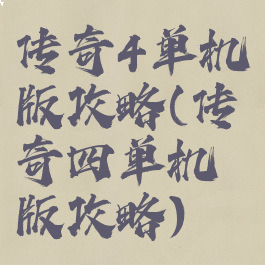 传奇4单机
版攻略(传
奇四单机
版攻略)